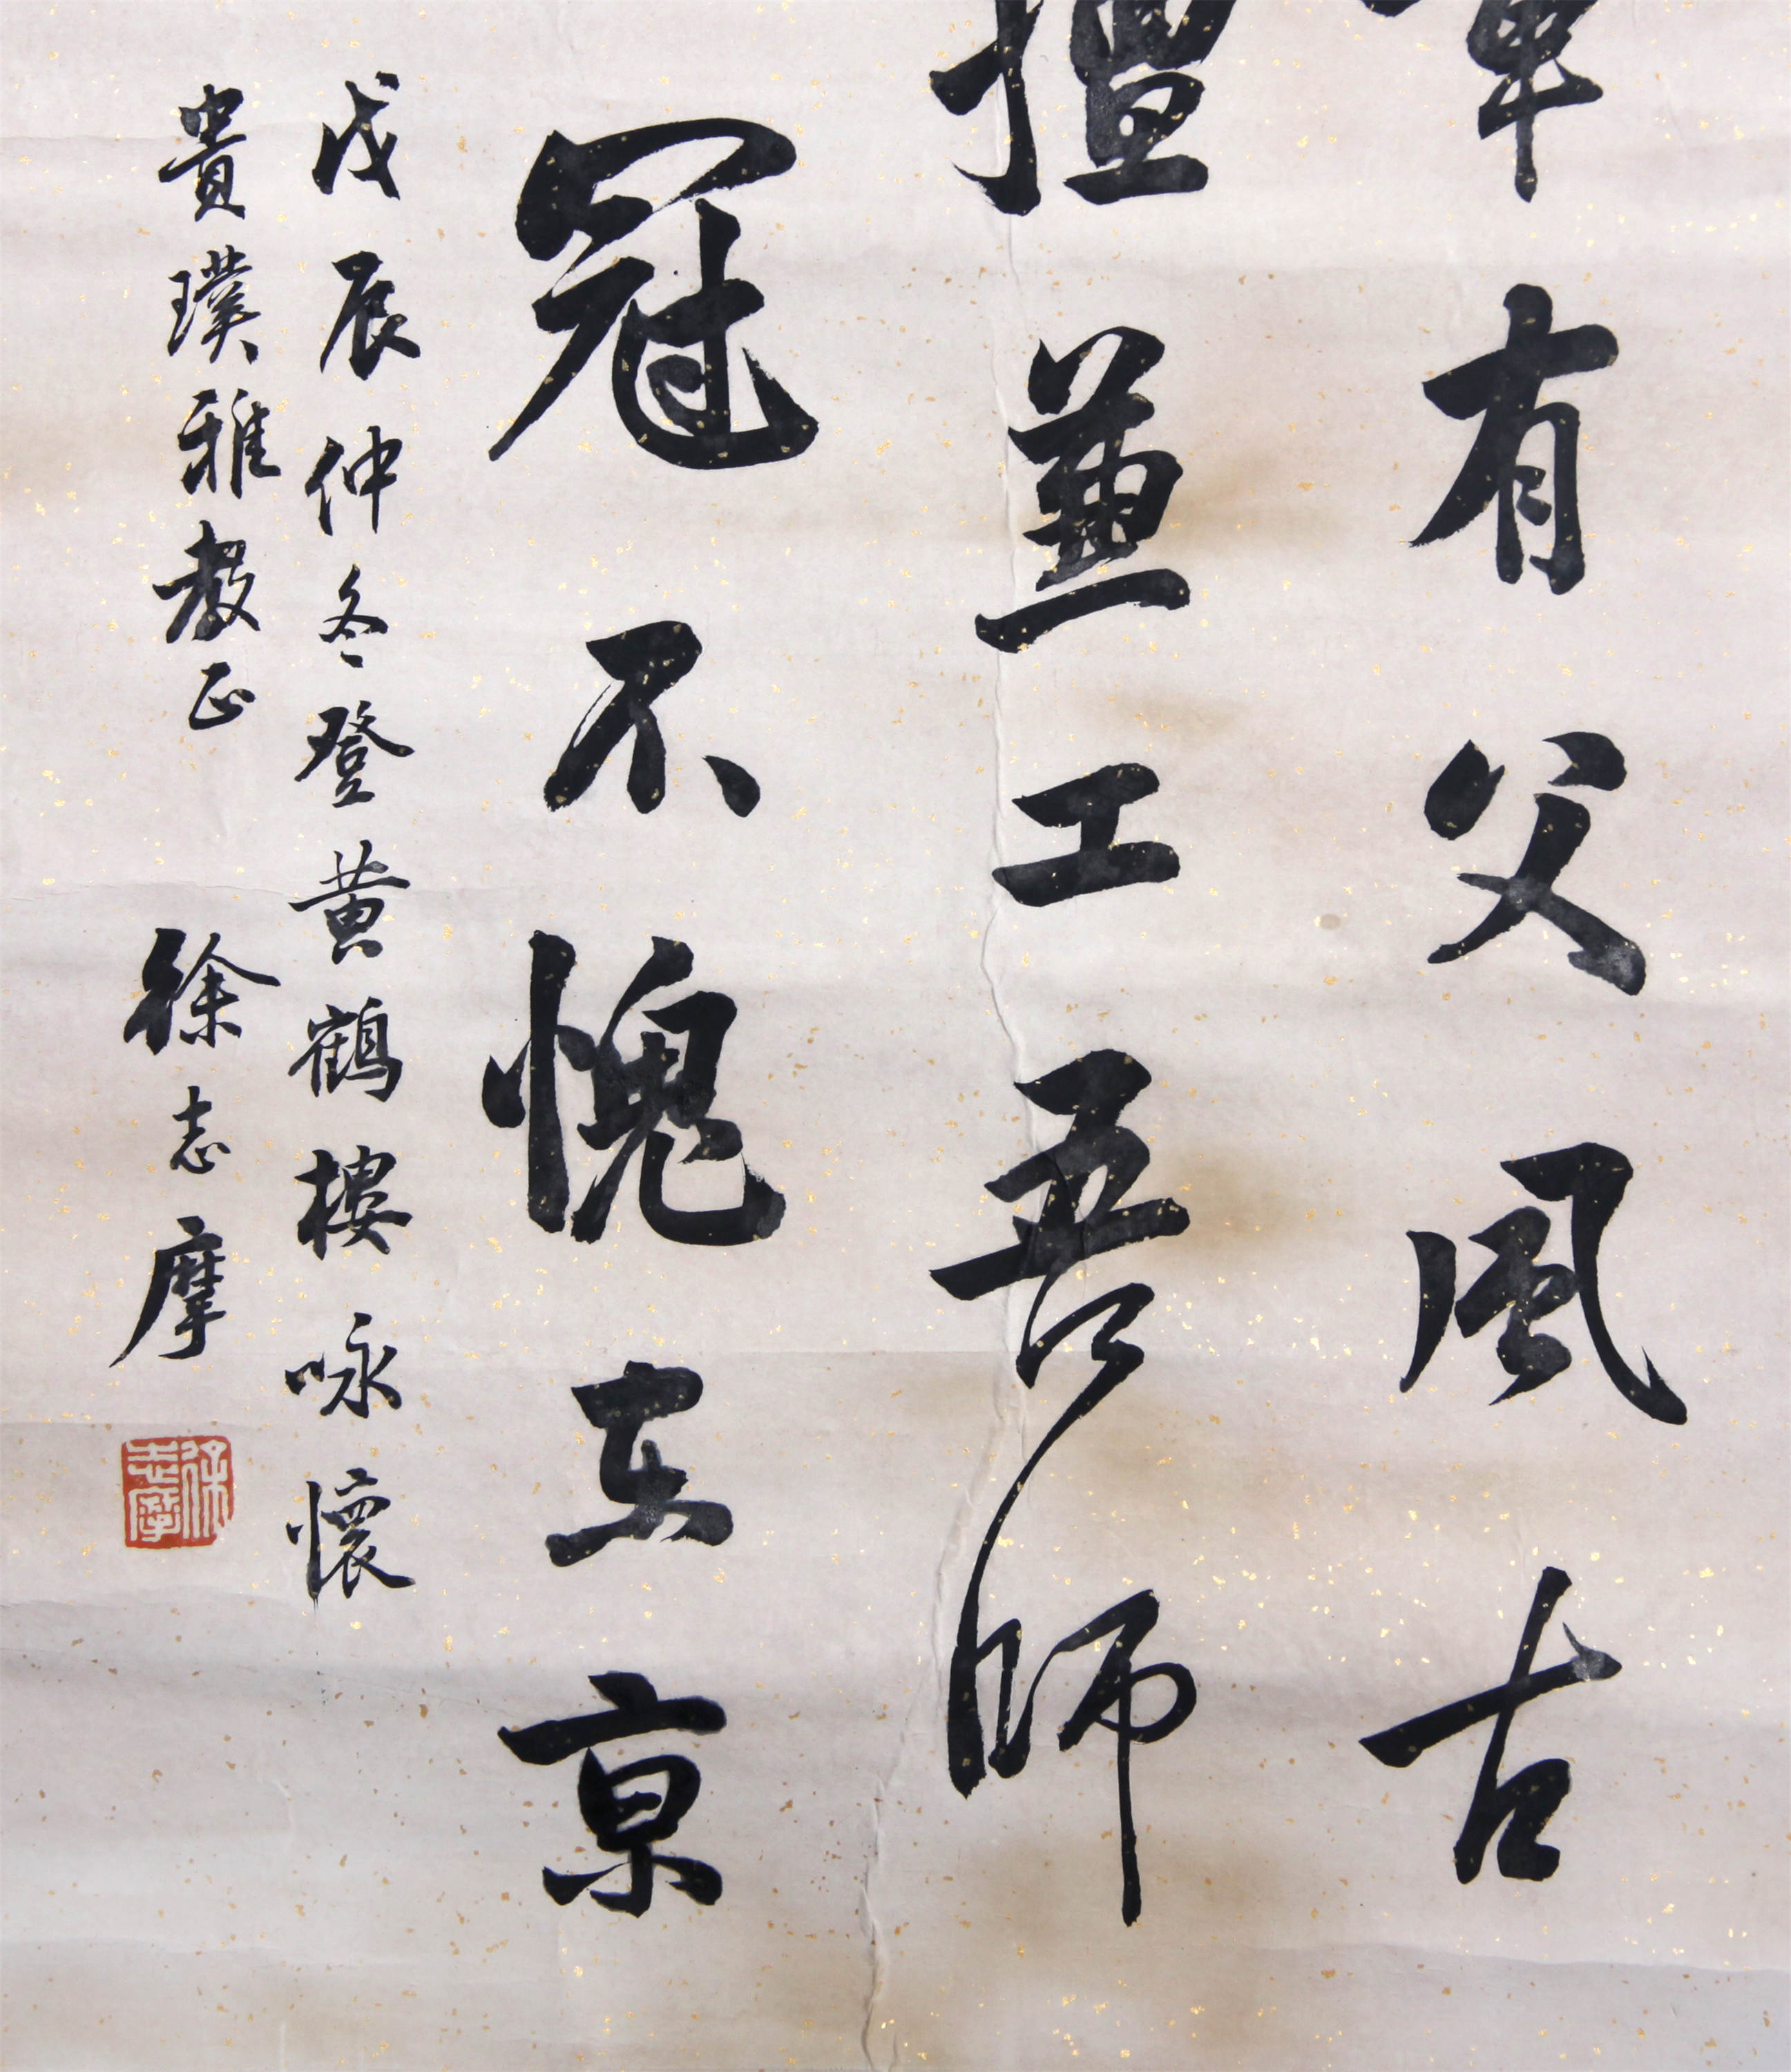 有父風古
擅兼工吾師
冠不愧東京
戊辰仲冬登黃鶴樓咏懷
貴璞雅教正 徐志摩
徐志摩